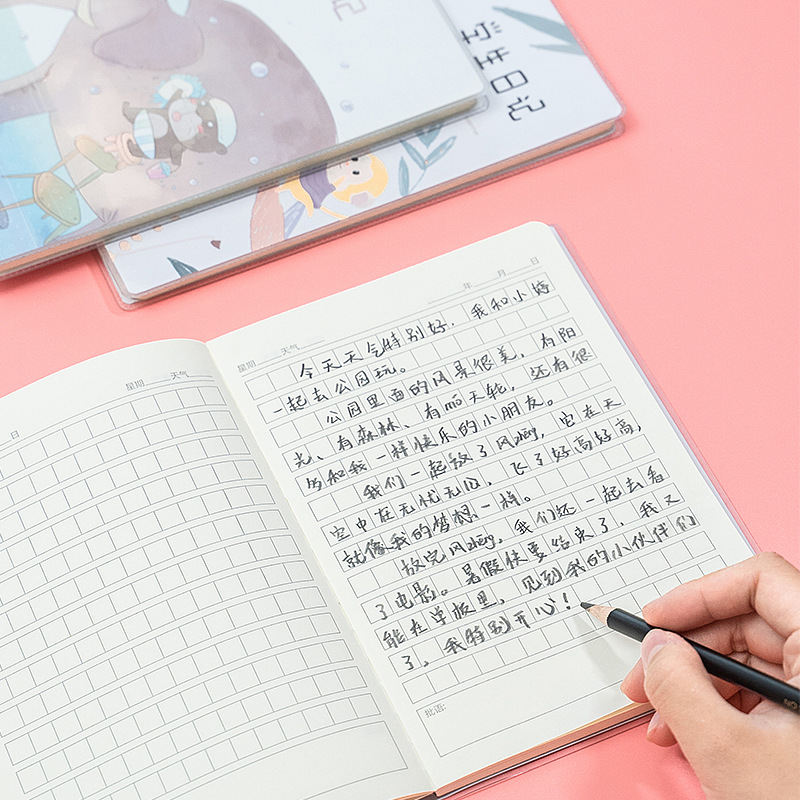 记
学生日记
日
星期 天气
年 月 日
星期 天气
今天天气特别好,我和小婷
一起去公园玩。
公园里面的风景很美,有阳
光、有森林、有mo天轮,还有很
多和我一样快乐的小朋友。
我们一起放了风zheng,它在天
空中在无忧无心,飞了好高好高,
就像我的梦想一样。
放完风zheng,我们还一起去看
了电影。暑假快要结束了,我又
能在学校里,见到我的小伙伴们
了,我特别开心!
批语: